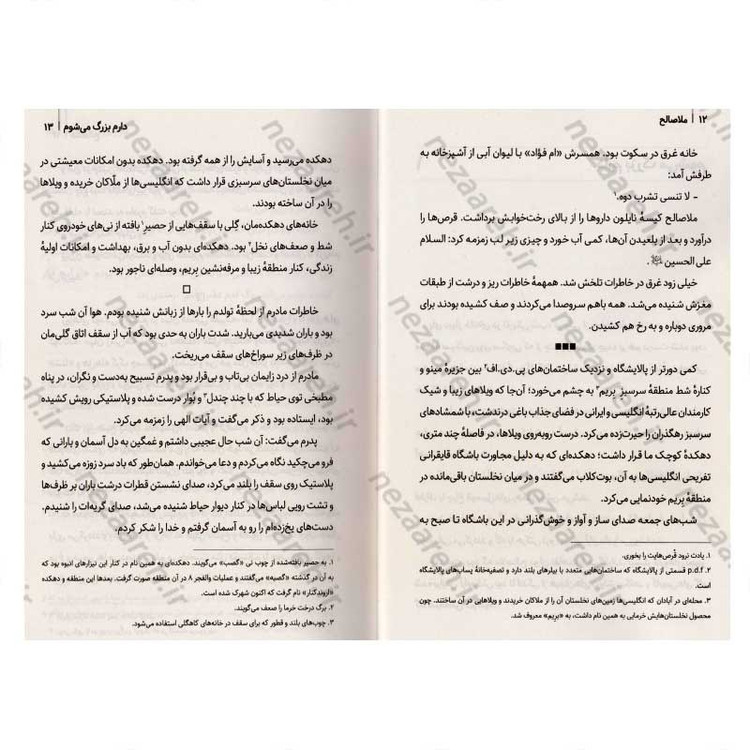 ۱۲ | ملاصالح
خانه غرق در سکوت بود. همسرش «ام فؤاد» با لیوان آبی از آشپزخانه به
طرفش آمد:
- لا تنسی تشرب دوه.¹
ملاصالح کیسهٔ نایلون داروها را از بالای رخت‌خوابش برداشت. قرص‌ها را
درآورد و بعد از بلعیدن آن‌ها، کمی آب خورد و چیزی زیر لب زمزمه کرد: السلام
علی الحسین.
خیلی زود غرق در خاطرات تلخش شد. همهمهٔ خاطرات ریز و درشت از طبقات
مغزش شنیده می‌شد. همه باهم سروصدا می‌کردند و صف کشیده بودند برای
مروری دوباره و به رخ هم کشیدن.
■■■
کمی دورتر از پالایشگاه و نزدیک ساختمان‌های پی.دی.اف² بین جزیرهٔ مینو و
کنارهٔ شط منطقهٔ سرسبز بریم³ به چشم می‌خورد؛ آن‌جا که ویلاهای زیبا و شیک
کارمندان عالی‌رتبهٔ انگلیسی و ایرانی در فضای جذاب باغی درندشت، با شمشادهای
سرسبز رهگذران را حیرت‌زده می‌کرد. درست روبه‌روی ویلاها، در فاصلهٔ چند متری،
دهکدهٔ کوچک ما قرار داشت؛ دهکده‌ای که به دلیل مجاورت باشگاه قایقرانی
تفریحی انگلیسی‌ها به آن، بوت‌کلاب می‌گفتند و در میان نخلستان باقی‌مانده در
منطقهٔ بریم خودنمایی می‌کرد.
شب‌های جمعه صدای ساز و آواز و خوش‌گذرانی در این باشگاه تا صبح به
۱. یادت نرود قُرص‌هایت را بخوری.
۲. p.d.f قسمتی از پالایشگاه که ساختمان‌هایی متعدد با بیلرهای بلند دارد و تصفیه‌خانهٔ پساب‌های پالایشگاه
است.
۳. محله‌ای در آبادان که انگلیسی‌ها زمین‌های نخلستان آن را از ملاکان خریدند و ویلاهایی در آن ساختند. چون
محصول نخلستان‌هایش خرمایی به همین نام داشت، به «بریم» معروف شد.
دارم بزرگ می‌شوم | ۱۳
دهکده می‌رسید و آسایش را از همه گرفته بود. دهکده بدون امکانات معیشتی در
میان نخلستان‌های سرسبزی قرار داشت که انگلیسی‌ها از ملّاکان خریده و ویلاها
را در آن ساخته بودند.
خانه‌های دهکده‌مان، گِلی با سقف‌هایی از حصیر¹ بافته از نی‌های خودروی کنار
شط و صعف‌های نخل² بود. دهکده‌ای بدون آب و برق، بهداشت و امکانات اولیهٔ
زندگی، کنار منطقهٔ زیبا و مرفه‌نشین بِریم، وصله‌ای ناجور بود.
□
خاطرات مادرم از لحظهٔ تولدم را بارها از زبانش شنیده بودم. هوا آن شب سرد
بود و باران شدیدی می‌بارید. شدت باران به حدی بود که آب از سقف اتاق گلی‌مان
در ظرف‌های زیر سوراخ‌های سقف می‌ریخت.
مادرم از درد زایمان بی‌تاب و بی‌قرار بود و پدرم تسبیح به‌دست و نگران، در پناه
مطبخی توی حیاط که با چند چندل³ و بُوار درست شده و پلاستیکی رویش کشیده
بود، ایستاده بود و ذکر می‌گفت و آیات الهی را زمزمه می‌کرد.
پدرم می‌گفت: آن شب حال عجیبی داشتم و غمگین به دل آسمان و بارانی که
فرو می‌چکید نگاه می‌کردم و دعا می‌خواندم. همان‌طور که باد سرد زوزه می‌کشید و
پلاستیک روی سقف را بلند می‌کرد، صدای نشستن قطرات درشت باران بر ظرف‌ها
و تشت رویی لباس‌ها در کنار دیوار حیاط شنیده می‌شد، صدای گریه‌ات را شنیدم.
دست‌های یخ‌زده‌ام را رو به آسمان گرفتم و خدا را شکر کردم.
۱. به حصیر بافته‌شده از چوب نی «گصب» می‌گویند. دهکده‌ای به همین نام در کنار این نیزارهای انبوه بود که
به آن در گذشته «گصبه» می‌گفتند و عملیات والفجر ۸ در آن منطقه صورت گرفت. بعدها این منطقه و دهکده
«اروندکنار» نام گرفت که اکنون شهرک شده است.
۲. برگ درخت خرما را صعف می‌گویند.
۳. چوب‌های بلند و قطور که برای سقف در خانه‌های کاهگلی استفاده می‌شود.
nezaareh.ir